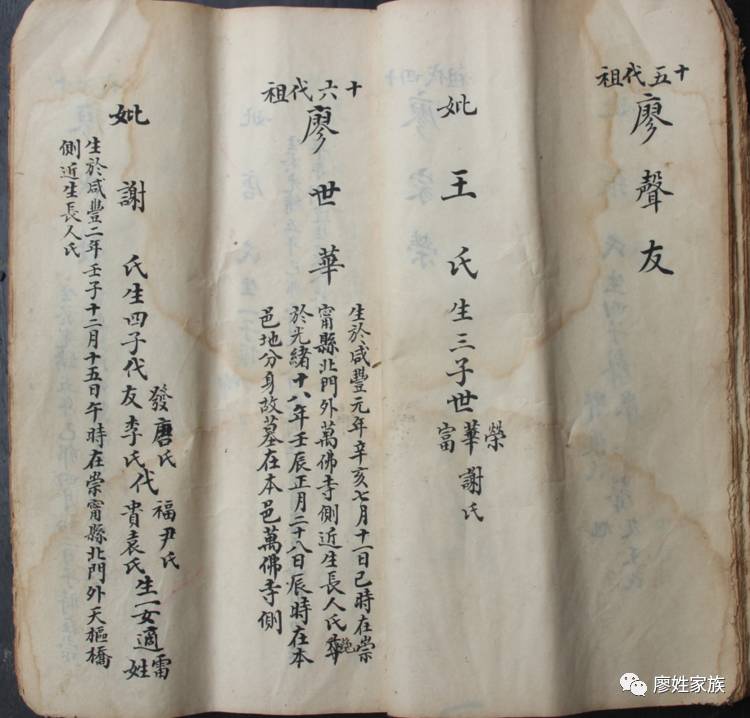 十五代祖
廖聲友
妣王氏生三子世榮華謝氏富
十六代祖
廖世華
生於咸豐元年辛亥七月十一日巳時在崇
甯縣北門外萬佛寺側近生長人氏華
於光緒十八年壬辰正月二十八日辰時在本
邑地分身故墓在本邑萬佛寺側
妣謝氏生四子代發唐氏友李氏代福尹氏貴袁氏生一女適雷姓
生於咸豐二年壬子十二月十五日午時在崇甯縣北門外天樞橋
側近生長人氏
廖姓家族